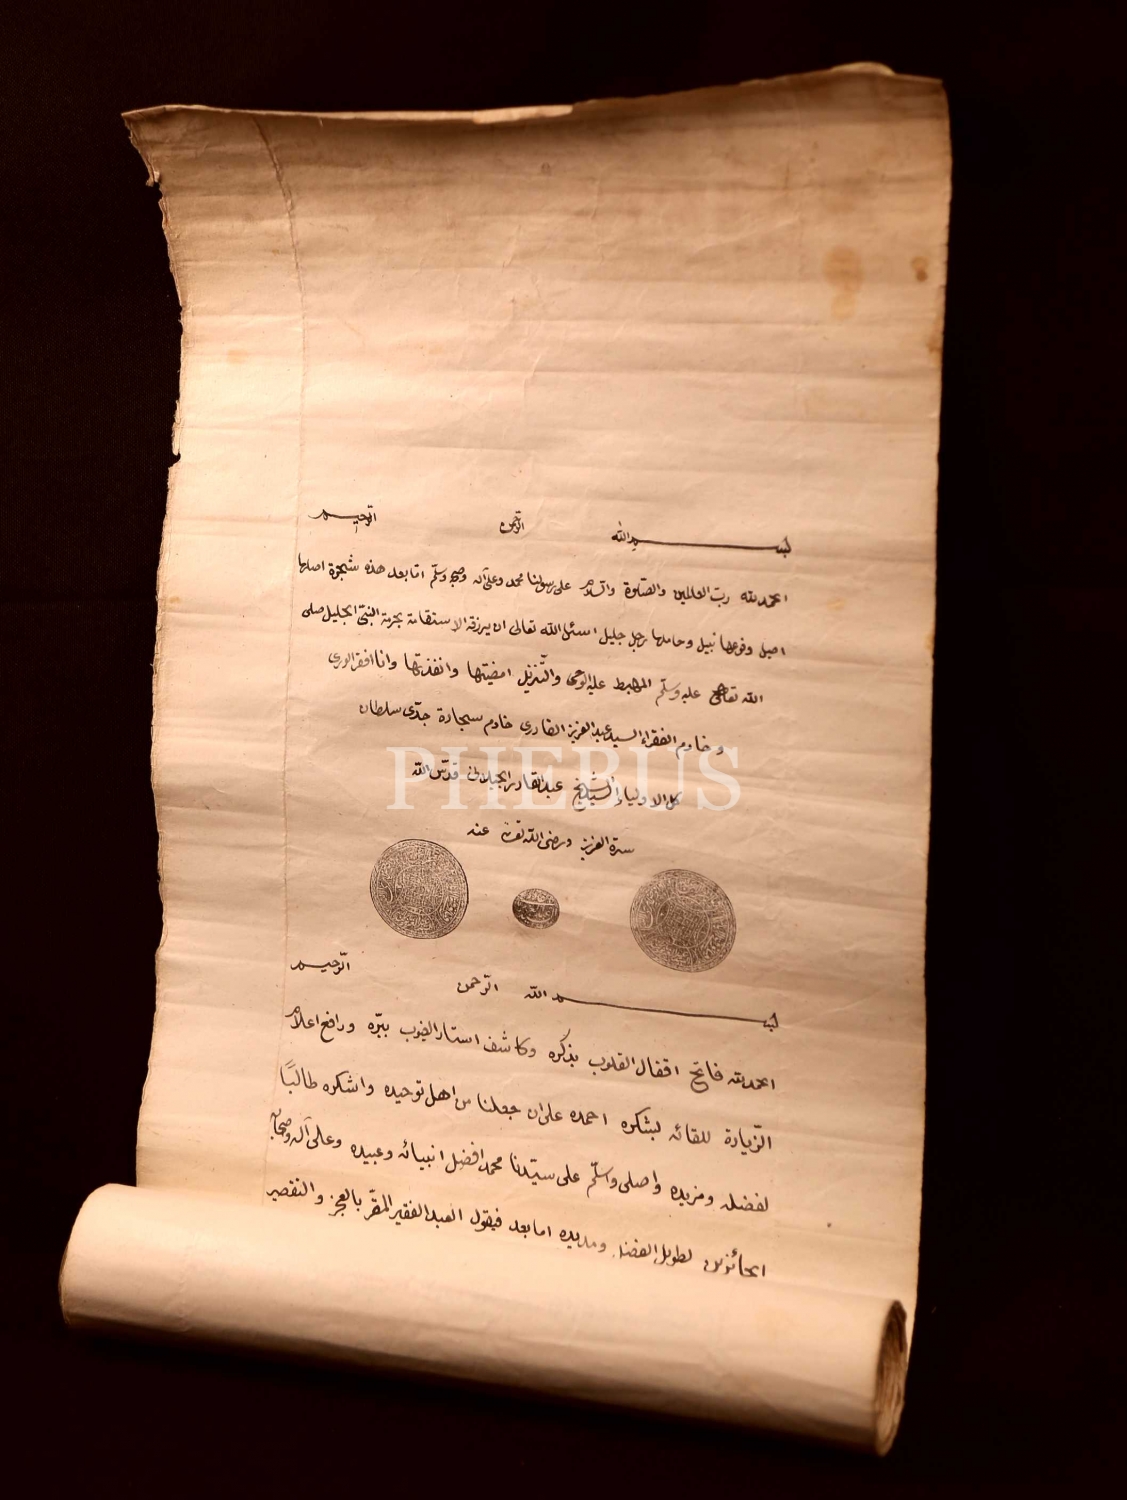 بسم الله الرحمن الرحيم
الحمد لله رب العالمين والصلوة والسلام على رسولنا محمد وعلى آله وصحبه وسلم اما بعد هذه شجرة اصلها
اصيل وفرعها نبيل وحاملها رجل جليل اسئل الله تعالى ان يرزقه الاستقامة بحرمة النبي الجليل صلى
الله تعالى عليه وسلم المهبط عليه الوحى والتنزيل امضيتها وانفذتها وانا افقر الورى
وخادم الفقراء السيد عبد العزيز القادرى خادم سجادة جدى سلطان
كل الاولياء السيد الشيخ عبد القادر الجيلانى قدس الله
سره العزيز ورضى الله تعالى عنه
PHEBUS
بسم الله الرحمن الرحيم
الحمد لله فاتح اقفال القلوب بذكره وكاشف استار الغيوب ببره ورافع اعلام
الزيادة للقائه لشكره احمده على ان جعلنا من اهل توحيده واشكره طالبًا
لفضله ومزيده واصلى واسلم على سيدنا محمد افضل انبيائه وعبيده وعلى آله وصحابه
الحائزين لطويل الفضل ومديده اما بعد فيقول العبد الفقير المقر بالعجز والتقصير